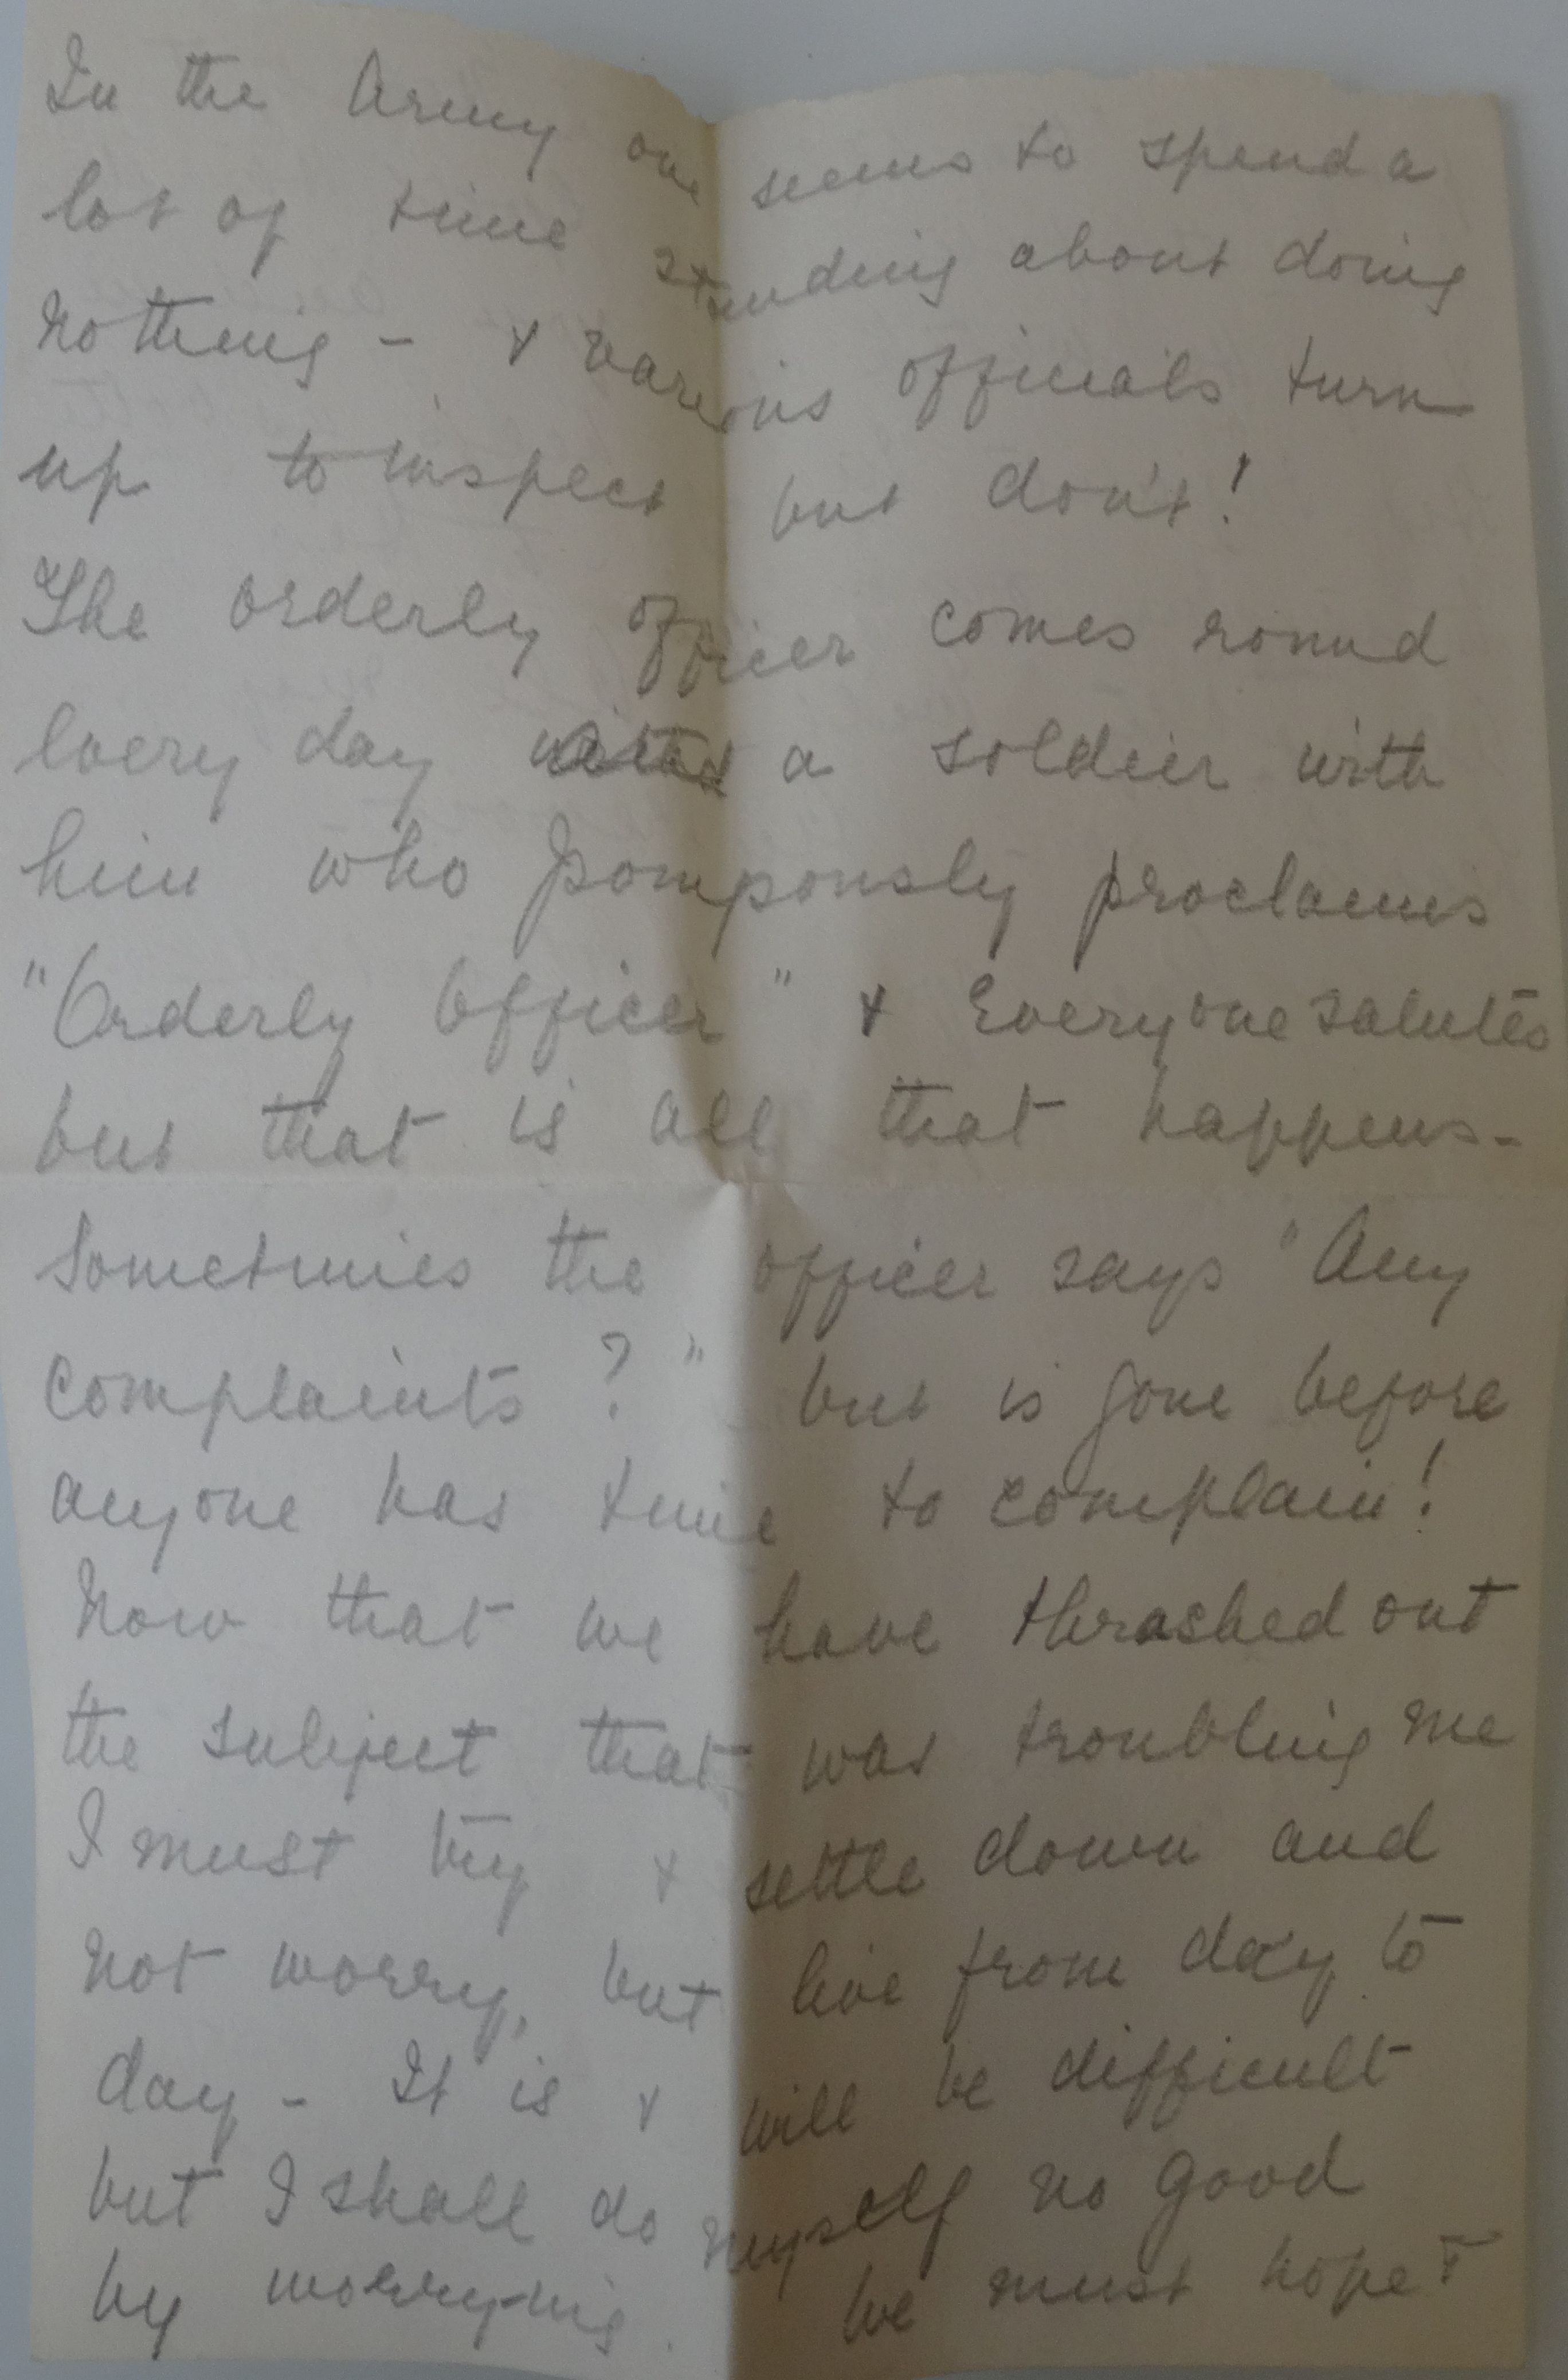 In the Army one seems to spend a
lot of time standing about doing
nothing - & various officials turn
up to inspect but don't!
The orderly officer comes round
every day a soldier with
him who pompously proclaims
"Orderly Officer" & Everyone salutes
but that is all that happens -
Sometimes the officer says "Any
complaints?" but is gone before
anyone has time to complain!
Now that we have thrashed out
the subject that was troubling me
I must try & settle down and
not worry, but live from day to
day - It is & will be difficult
but I shall do myself no good
by worrying. We must hope &